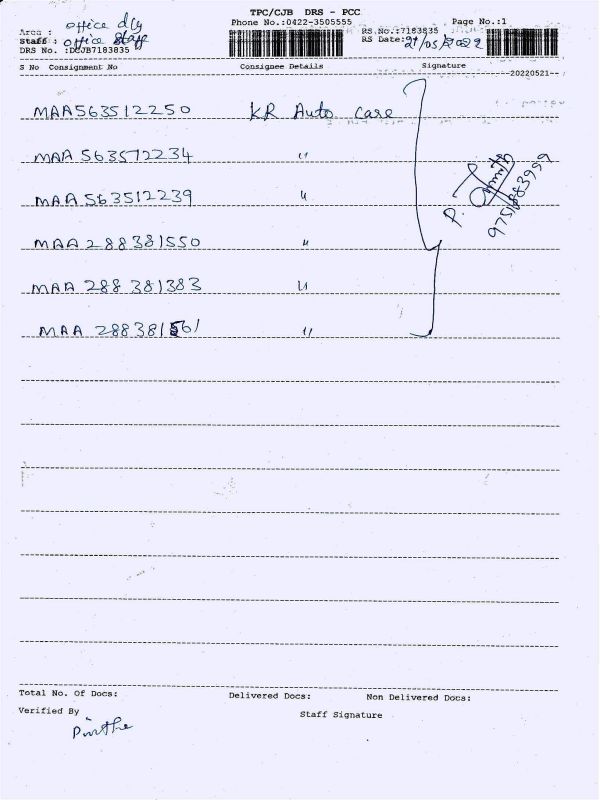 TPC/CJB DRS - PCC
Phone No.:0422-3505555 Page No.:1
Area : office dly
Staff : office staff
RS.No.:7183835
RS Date: 21/05/2022
DRS No. :DCJB7183835
S No Consignment No Consignee Details Signature
20220521--
MAA563512250 KR Auto care
MAA 563512234 "
MAA 563512239 "
MAA 288381550 "
MAA 288 381383 "
MAA 288381561 "
P.
9751883959
Total No. Of Docs: Delivered Docs: Non Delivered Docs:
Verified By Staff Signature